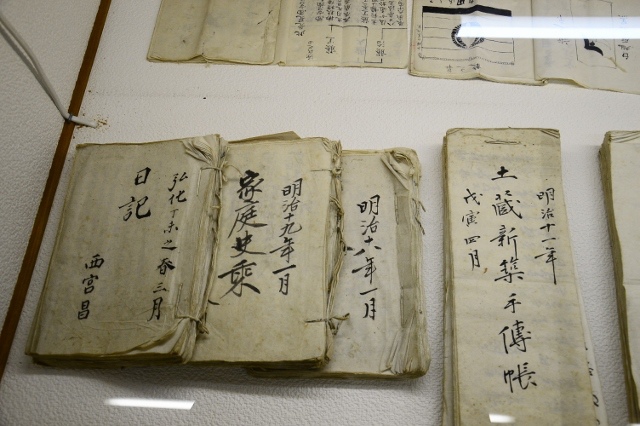 弘化丁未之春三月
日記
西宮昌
明治十九年一月
家庭史乘
明治十八年一月
明治十一年
土蔵新築手傳帳
戊寅四月